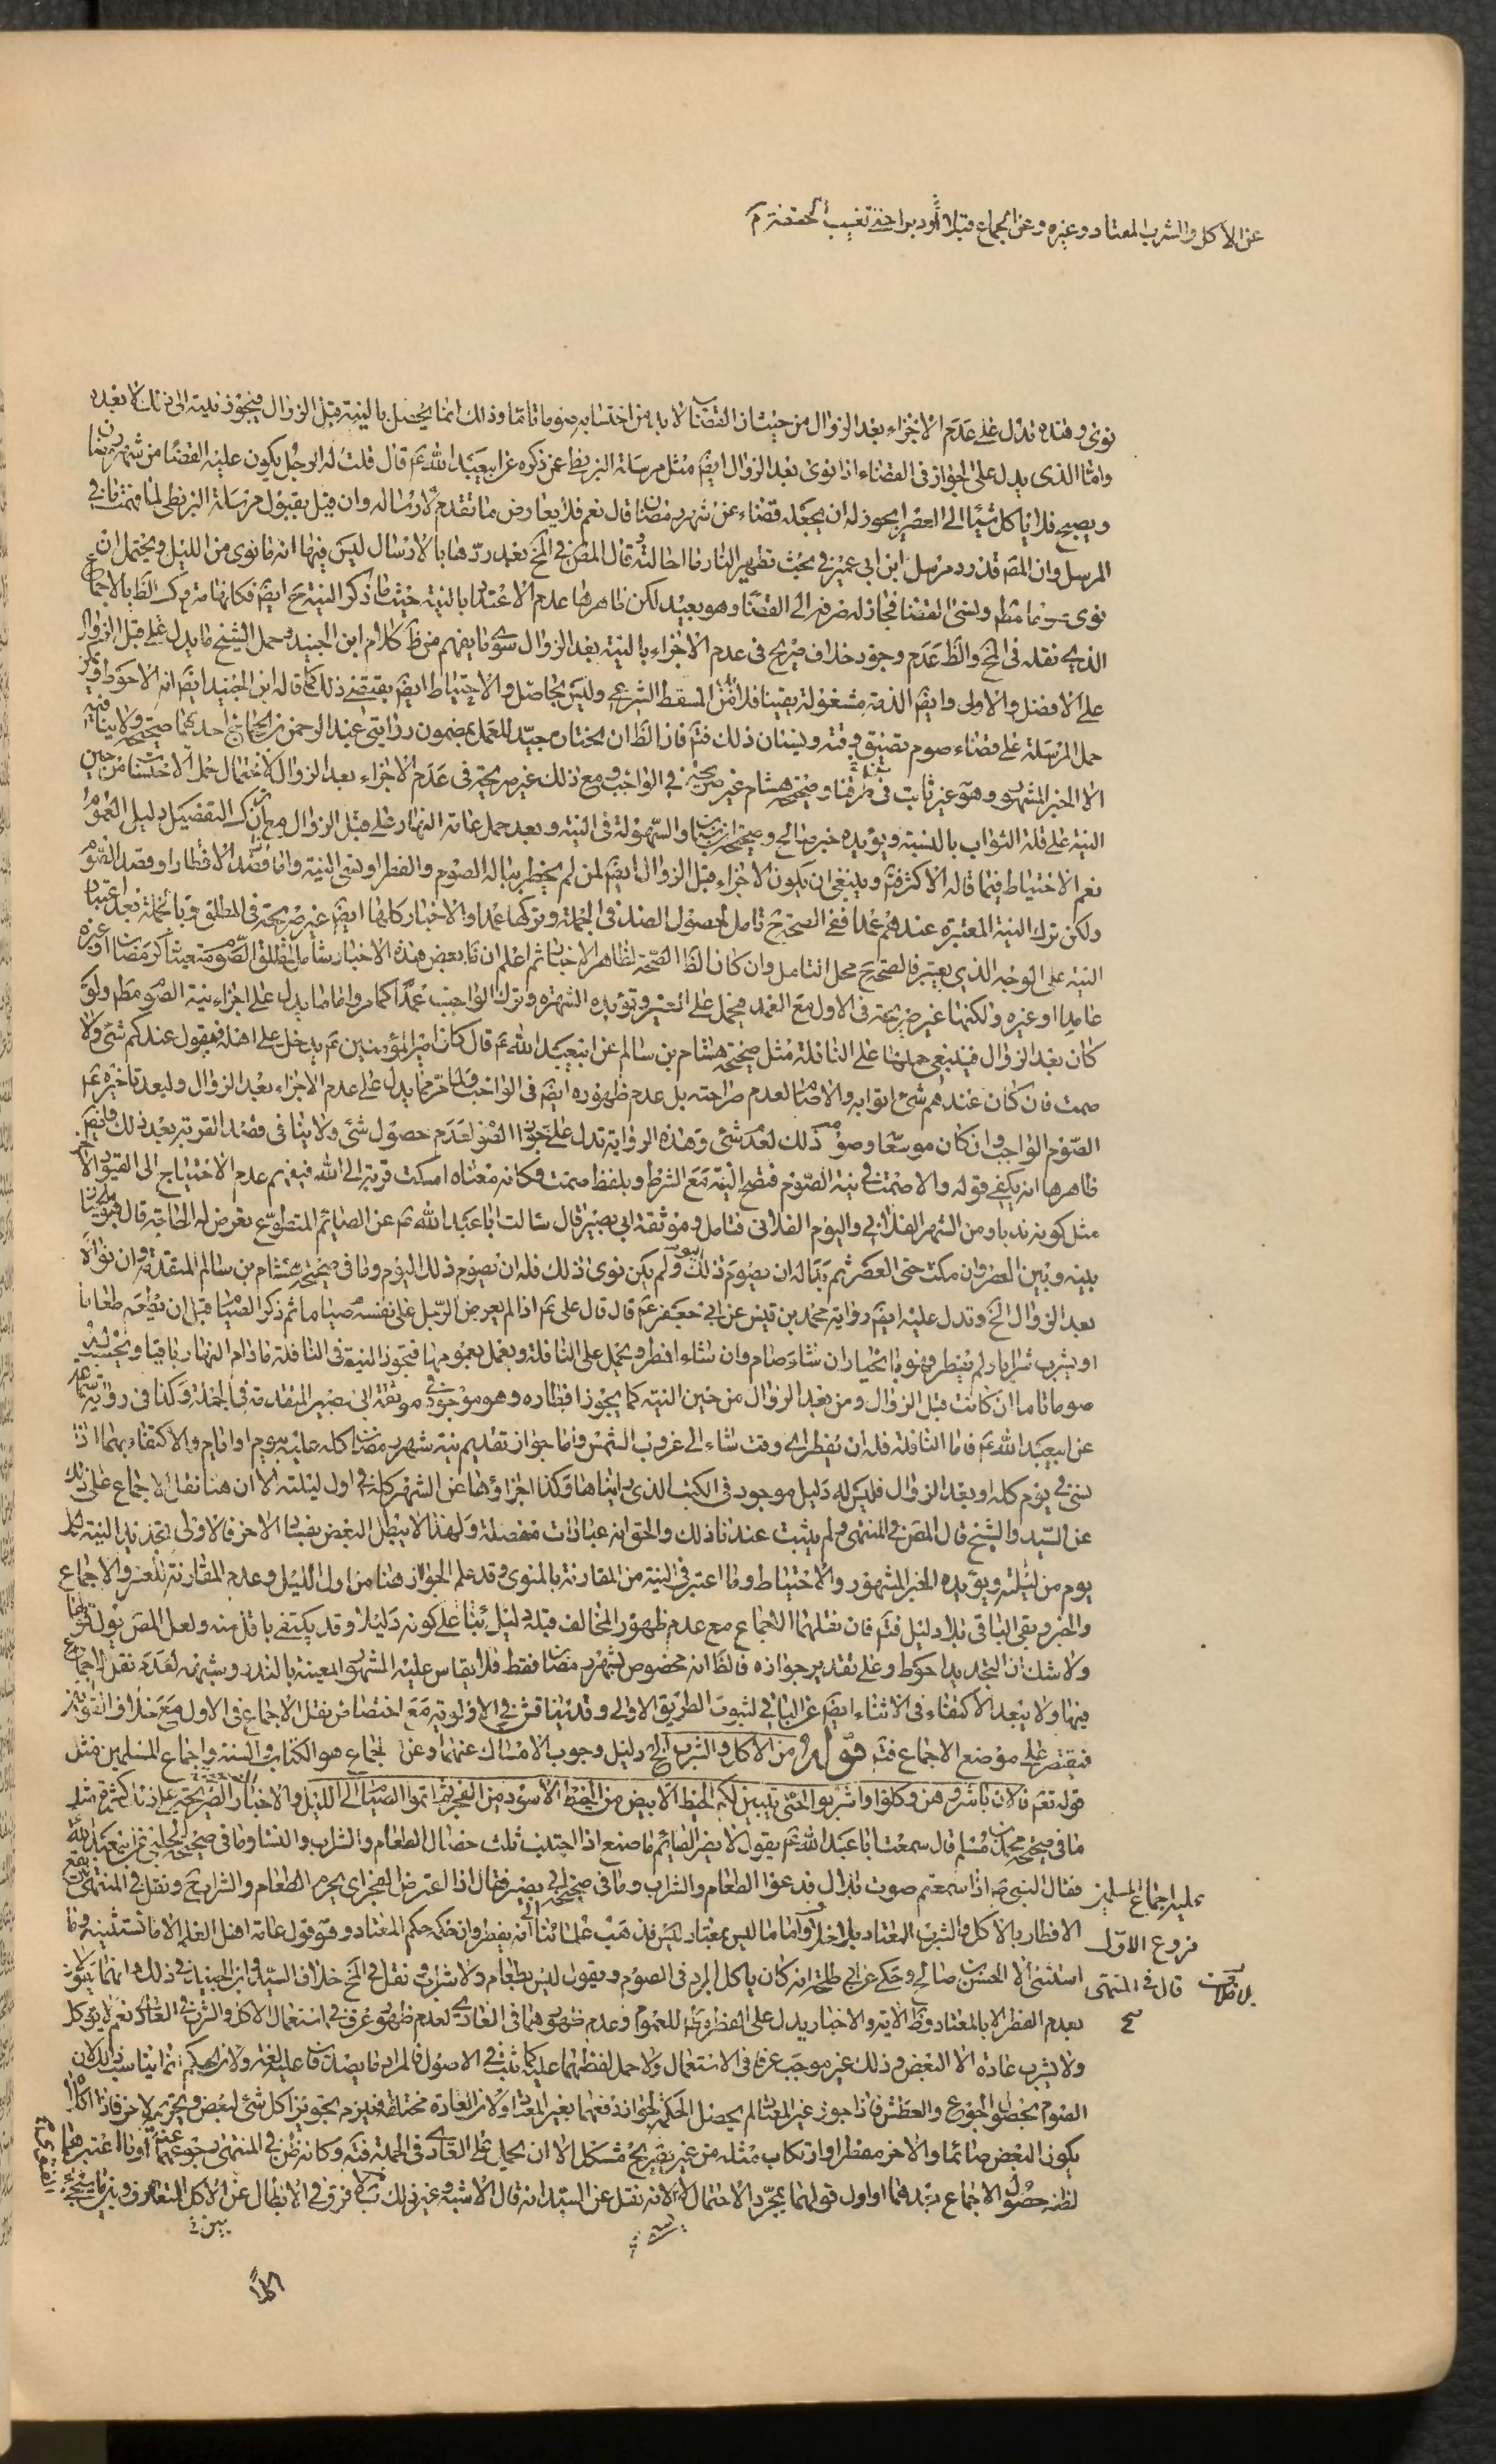 عن الاكل والشرب المعتاد وغيره وعن الجماع قبلا أو دبرا حتى تغيب الحشفة
نوى وهذه تدل على عدم الاجزاء بعد الزوال من حيث ان القضاء لا بد من احتسابه صوما تاما وذلك انما يحصل بالنية قبل الزوال فيجوز نيته الى ذلك لا بعده
واما الذى يدل على الجواز فى القضاء اذا نوى بعد الزوال ايضً مثل مرسلة البزنطى عمن ذكره عن ابيعبد الله عم قال قلت له الرجل يكون عليه القضاء من شهر رمضان
ويصبح فلا ياكل شيئا الى العصر ايجوز له ان يجعله قضاء عن شهر رمضان قال نعم فلا يعارض ما تقدم لارساله وان قيل بقبول مرسلة البزنطى لما فهمت ما فى
المرسل وان المصً قد رد مرسل ابن ابى عمير فى بحث تطهير النار ما احالته وقال المصً فى المخ بعد ردها بالارسال ليس فيها انه ما نوى من الليل ويحتمل ان
نوى صوما مطم ونسى القضاء فجاز له صرفه الى القضاء وهو بعيد لكن ظاهرها عدم الاعتداد بالنية حيث ما ذكر النية مح ايضً فكانها متروك الظ بالاجماع
الذى نقله فى المخ والظ عدم وجود خلاف صريح فى عدم الاجزاء بالنية بعد الزوال سوى ما يفهم من ظ كلام ابن الجنيد وحمل الشيخ ما يدل على قبل الزوال
على الافضل والاولى وايضً الذمة مشغولة يقينا فلا بد من المسقط الشرعى وليس بحاصل والاحتياط ايضً يقتضى ذلك كما قاله ابن الجنيد ايضً انه الاحوط
حمل المرسلة على قضاء صوم تضيق وقته ونسيان ذلك فتم فاذا الظ ان المختار جيد للعمل بمضمون روايتى عبد الرحمن بن الحجاج احديهما صحيحة ولا ينافيه
الا الخبر المشهور وهو غير ثابت فى طرقنا وصحيحة هشام غير صريحة فى الواجب ومع ذلك غير صريحة فى عدم الاجزاء بعد الزوال لاحتمال حمل الاحتساب من حين
النية على قلة الثواب بالنسبة ويؤيده خبر صالح وصحيحة ابن سنان والسهولة فى النية وبعد حمل عامة النهار على قبل الزوال مع ترك التفصيل دليل العموم
نعم الاحتياط فيما قاله الاكثر فتم وينبغى ان يكون الاجزاء قبل الزوال ايضً لمن لم يخطر بباله الصوم والفطر او نسى النية واما قصد الافطار او قصد الصوم
ولكن ترك النية المعتبرة عندهم عمدا ففى الصحيح تامل لحصول الضد فى الجملة وتركها عمدا والاخبار كلها ايضً غير صريحة فى المطلق وبالجملة بعد اعتبار
النية على الوجه الذى يعتبر فالصحيح محل التامل وان كان الظ الصحة لظاهر الاخبار ثم اعلم ان بعض هذه الاخبار شامل لمطلق الصوم متعينا كرمضان او غيره
عامدا او غيره ولكنها غير صريحة فى الاول مع العمد فيحمل على العسر وتؤيده الشهرة وترك الواجب عمدًا كما مر واما ما يدل على اجزاء نية الصوم مطم ولو
كان بعد الزوال فينبغى حملها على النافلة مثل صحيحة هشام بن سالم عن ابيعبد الله عم قال كان امير المؤمنين عم يدخل على اهله فيقول عندكم شئ ولا
صمت فان كان عندهم شئ اتوا به والا صام لعدم صراحته بل عدم ظهوره ايضً فى الواجب ولما مر مما يدل على عدم الاجزاء بعد الزوال ولبعد تاخيره عم
الصوم الواجب وان كان موسعا وصوم ذلك لعدم شئ وهذه الرواية تدل على جواز الصوم لعدم حصول شئ ولا ينافى قصد القربة بعد ذلك وايضً
ظاهرها انه يكفى قوله والا صمت فى نية الصوم فتصح النية مع الشرط وبلفظ صمت وكانه معناه امسكت قربة الى الله فيفهم عدم الاحتياج الى القيود الاخر
مثل كونه ندبا ومن الشهر الفلانى واليوم الفلانى فتامل وموثقة ابى بصير قال سالت ابا عبد الله عم عن الصائم المتطوع تعرض له الحاجة قال هو بالخيار ما
بينه وبين العصر وان مكث حتى العصر ثم بدا له ان يصوم ذلك اليوم ولم يكن نوى ذلك فله ان يصوم ذلك اليوم وما فى صحيحة هشام بن سالم المتقدمة وان نواه
بعد الزوال الخ وتدل عليه ايضً رواية محمد بن قيس عن ابى جعفر عم قال قال على عم اذا لم يعرض الرجل على نفسه صياما ثم ذكر الصيام قبل ان يطعم طعاما
او يشرب شرابا ولم يفطر فهو بالخيار ان شاء صام وان شاء افطر ويحمل على النافلة ويعمل بعمومها فتجوز النية فى النافلة ما دام النهار باقيا ويحتسب له
صوما تاما ان كانت قبل الزوال ومن بعد الزوال من حين النية كما يجوز افطاره وهو موجود فى موثقة ابى بصير المتقدمة فى الجملة وكذا فى رواية سماعة
عن ابيعبد الله عم فاما النافلة فله ان يفطر اى وقت شاء الى غروب الشمس واما جواز تقديم نية شهر رمضان كله عليه بيوم او ايام والاكتفاء بهما اذا
نسى فى يوم كله او بعد الزوال فليس له دليل موجود فى الكتب الذى رايناها وكذا اجزاؤها عن الشهر كله فى اول ليلته الا ان هنا نقل الاجماع على ذلك
عن السيد والشيخ قال المصً فى المنتهى ولم يثبت عندنا ذلك والحق انه عبادات منفصلة ولهذا لا يبطل البعض بفساد الاخر فالاولى تجديد النية لكل
يوم من ليلته ويؤيده الخبر المشهور والاحتياط وما اعتبر فى النية من المقارنة بالمنوى وقد علم الجواز هنا من اول الليل وعدم المقارنة للعسر والاجماع
والخبر وبقى الباقى بلا دليل فتم فان نقلهما الاجماع مع عدم ظهور المخالف قبله دليل بناء على كونه دليلا وقد يكتفى باقل منه ولعل المصً يقول
ولا شك ان التجديد احوط وعلى تقدير جوازه فالظ انه مخصوص بشهر رمضان فقط فلا يقاس عليه الشهور المعينة بالنذر وشبهه لعدم نقل الاجماع
فيها ولا يبعد الاكتفاء فى الاثناء ايضً عن الباقى لثبوت الطريق الاولى وقد يناقش فى الاولوية مع اختصاص نقل الاجماع فى الاول مع خلاف
فيقتصر على موضع الاجماع فتم قوله من الاكل والشرب الخ دليل وجوب الامساك عنهما وعن الجماع هو الكتاب والسنة واجماع المسلمين مثل
قوله تعم فالان باشروهن وكلوا واشربوا حتى يتبين لكم الخيط الابيض من الخيط الاسود من الفجر ثم اتموا الصيام الى الليل والاخبار الصريحة على ذلك كثيرة مثل
ما فى صحيحة محمد بن مسلم قال سمعت ابا عبد الله عم يقول لا يضر الصائم ما صنع اذا اجتنب ثلث خصال الطعام والشراب والنساء وما فى صحيحة الحلبى عن ابيعبد الله
فقال النبى ص اذا سمعتم صوت بلال فدعوا الطعام والشراب وما فى صحيحة ابى بصير فقال اذا اعترض الفجر اى يحرم الطعام والشراب الخ ونقل فى المنتهى
عليه اجماع المسلمين
فروع الاول
الافطار بالاكل والشرب المعتاد بلا خلاف واما ما ليس بمعتاد فذهب علمائنا الى انه يفطر وان حكمه حكم المعتاد وهو قول عامة اهل العلم الا ما نستثنيه
قال فى المنتهى
استثنى الا الحسن بن صالح وحكى عن ابى طلحة انه كان ياكل البرد فى الصوم ويقول ليس بطعام ولا شراب ونقل فى المخ خلاف السيد وابن الجنيد فى ذلك وانهما يقولان
بعدم الفطر الا بالمعتاد وظ الاية والاخبار يدل على الفطر مطم للعموم وعدم ظهورهما فى العادى لعدم ظهور عرف فى استعمال الاكل والشرب فى العادى نعم لا يؤكل
ولا يشرب عادة الا البعض وذلك غير موجب عرفا فى الاستعمال ولا حمل لفظهما عليه كما ثبت فى الاصول فالمراد ما يصدقان عليه لغة ولان الحكم انما يناسب ذلك لان
الصوم بحصول الجوع والعطش فاذا جوز غير المعتاد لم يحصل الحكمة لجواز دفعهما بغير المعتاد ولان العادة مختلفة فيلزم تجويز اكل شئ لبعض وتحريمه لاخر فاذا اكلا
يكون البعض صائما والاخر مفطرا وارتكاب مثله من غير تصريح مشكل الا ان يحمل على العادى فى الجملة فتم وكانه ظن فى المنتهى رجوعهما او ما اعتبرهما
لظنه حصول الاجماع بعدهما او اول قولهما بمجرد الاحتمال لانه نقل عن السيد انه قال الاشبه وغير ذلك